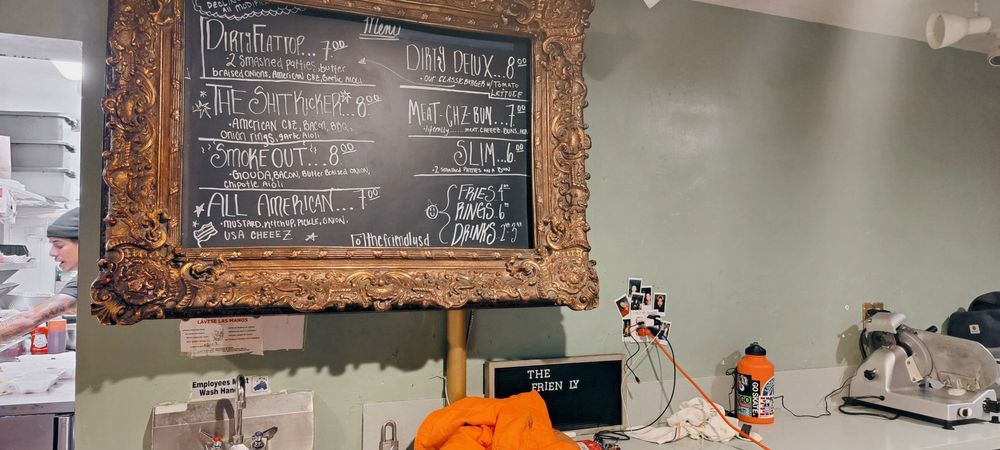 all modif
Menu
DIRTYFLATTOP... 7.00
2 SMASHED PATTIES, butter
braised onions, AMERICAN CHZ, GARLIC AIOLI
THE SHIT KICKER 8.00
• AMERICAN CHZ, BACON, BBQ,
ONION RINGS, GARLIC AIOLI
SMOKE OUT... 8.00
• GOUDA, BACON, BUTTER BRAISED ONION,
CHIPOTLE AIOLI
ALL AMERICAN... 7.00
• MUSTARD, KETCHUP, PICKLE, ONION,
USA CHEEEZ
DIRTY DELUX... 8.00
• OUR CLASSIC BURGER W/ TOMATO
LETTUCE
MEAT-CHZ-BUN... 7.00
SLIM... 6.00
• 2 SMASHED PATTIES ON A BUN
FRIES 4.00
RINGS. 6.00
DRINKS 2.00-3.00
thefriendlysd
LAVESE LAS MANOS
Employees Must
Wash Hands
THE
FRIEN LY
GO SKATE